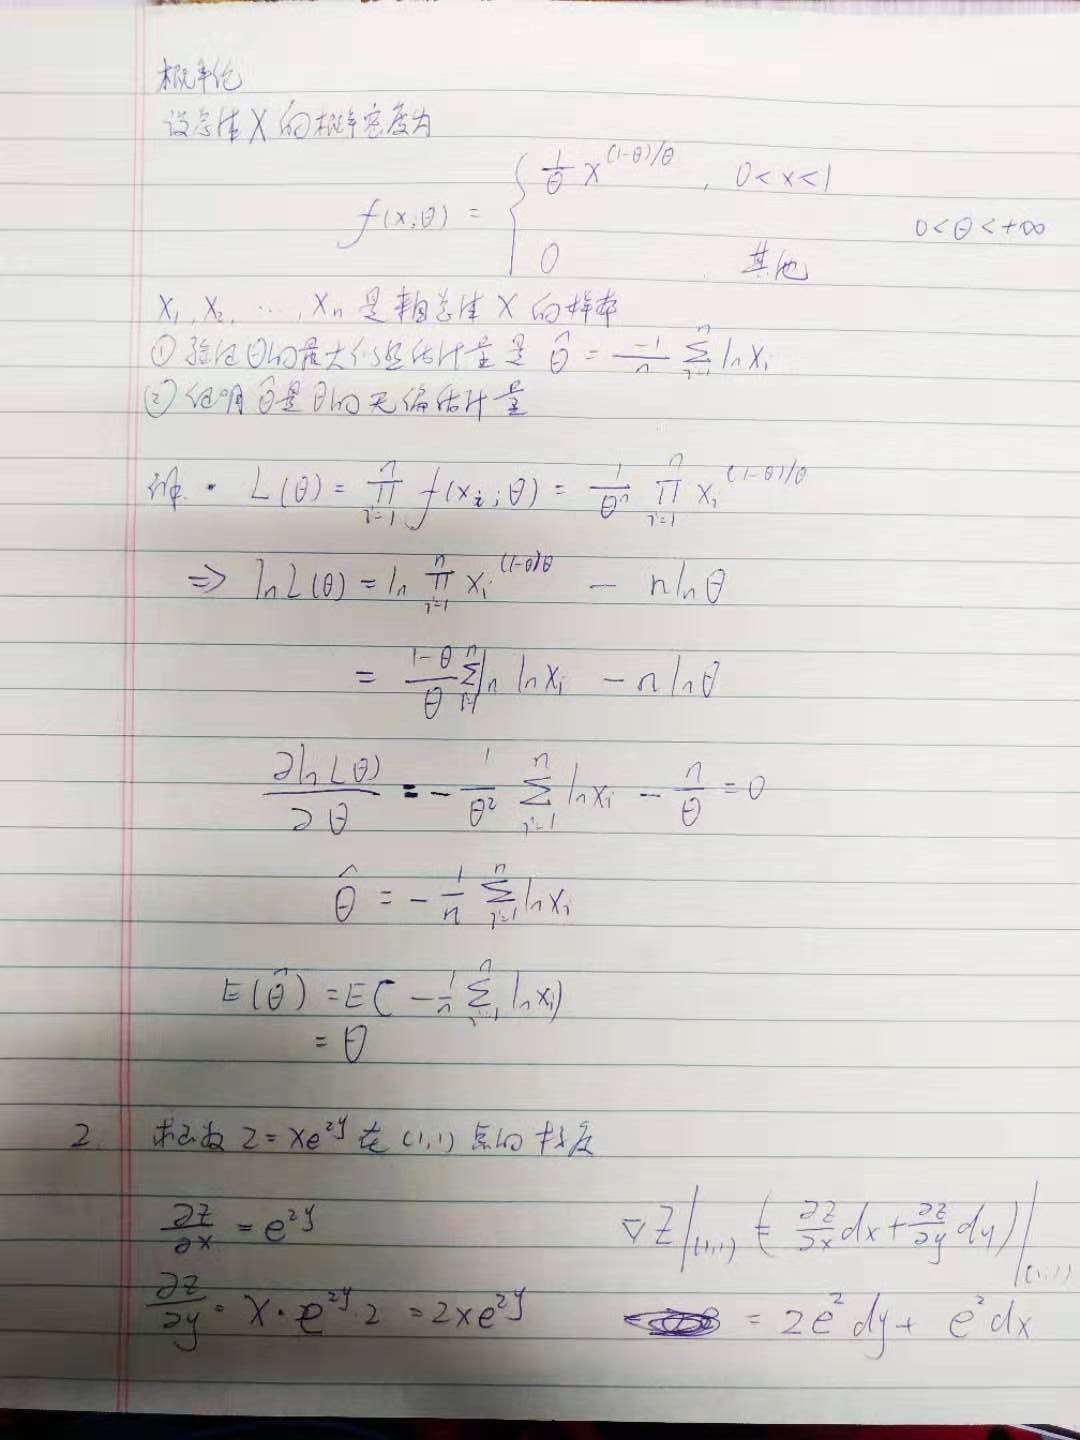 概率伦
设总体X的概率密度为
f(x;θ) = { 1/θ x^((1-θ)/θ) , 0<x<1
0<θ<+∞
0 其他
X₁, X₂, ···, Xn 是来自总体 X 的样本
① 验证θ的最大似然估计量是 θ̂ = -1/n ∑_{i=1}^{n} ln Xi
② 证明 θ̂是θ的无偏估计量
证. · L(θ) = ∏_{i=1}^{n} f(xi; θ) = 1/θⁿ ∏_{i=1}^{n} xi^((1-θ)/θ)
⇒ ln L(θ) = ln ∏_{i=1}^{n} xi^((1-θ)/θ) − n ln θ
= (1-θ)/θ ∑_{i=1}^{n} ln xi − n ln θ
∂ln L(θ)/∂θ = − 1/θ² ∑_{i=1}^{n} ln xi − n/θ = 0
θ̂ = − 1/n ∑_{i=1}^{n} ln xi
E(θ̂) = E( − 1/n ∑_{i=1}^{n} ln xi)
= θ
2. 求函数 z = xe^{2y} 在 (1,1) 点的梯度
∂z/∂x = e^{2y}
∇z|(1,1) = (∂z/∂x dx + ∂z/∂y dy)|(1,1)
∂z/∂y = x · e^{2y} · 2 = 2xe^{2y}
= 2e² dy + e² dx